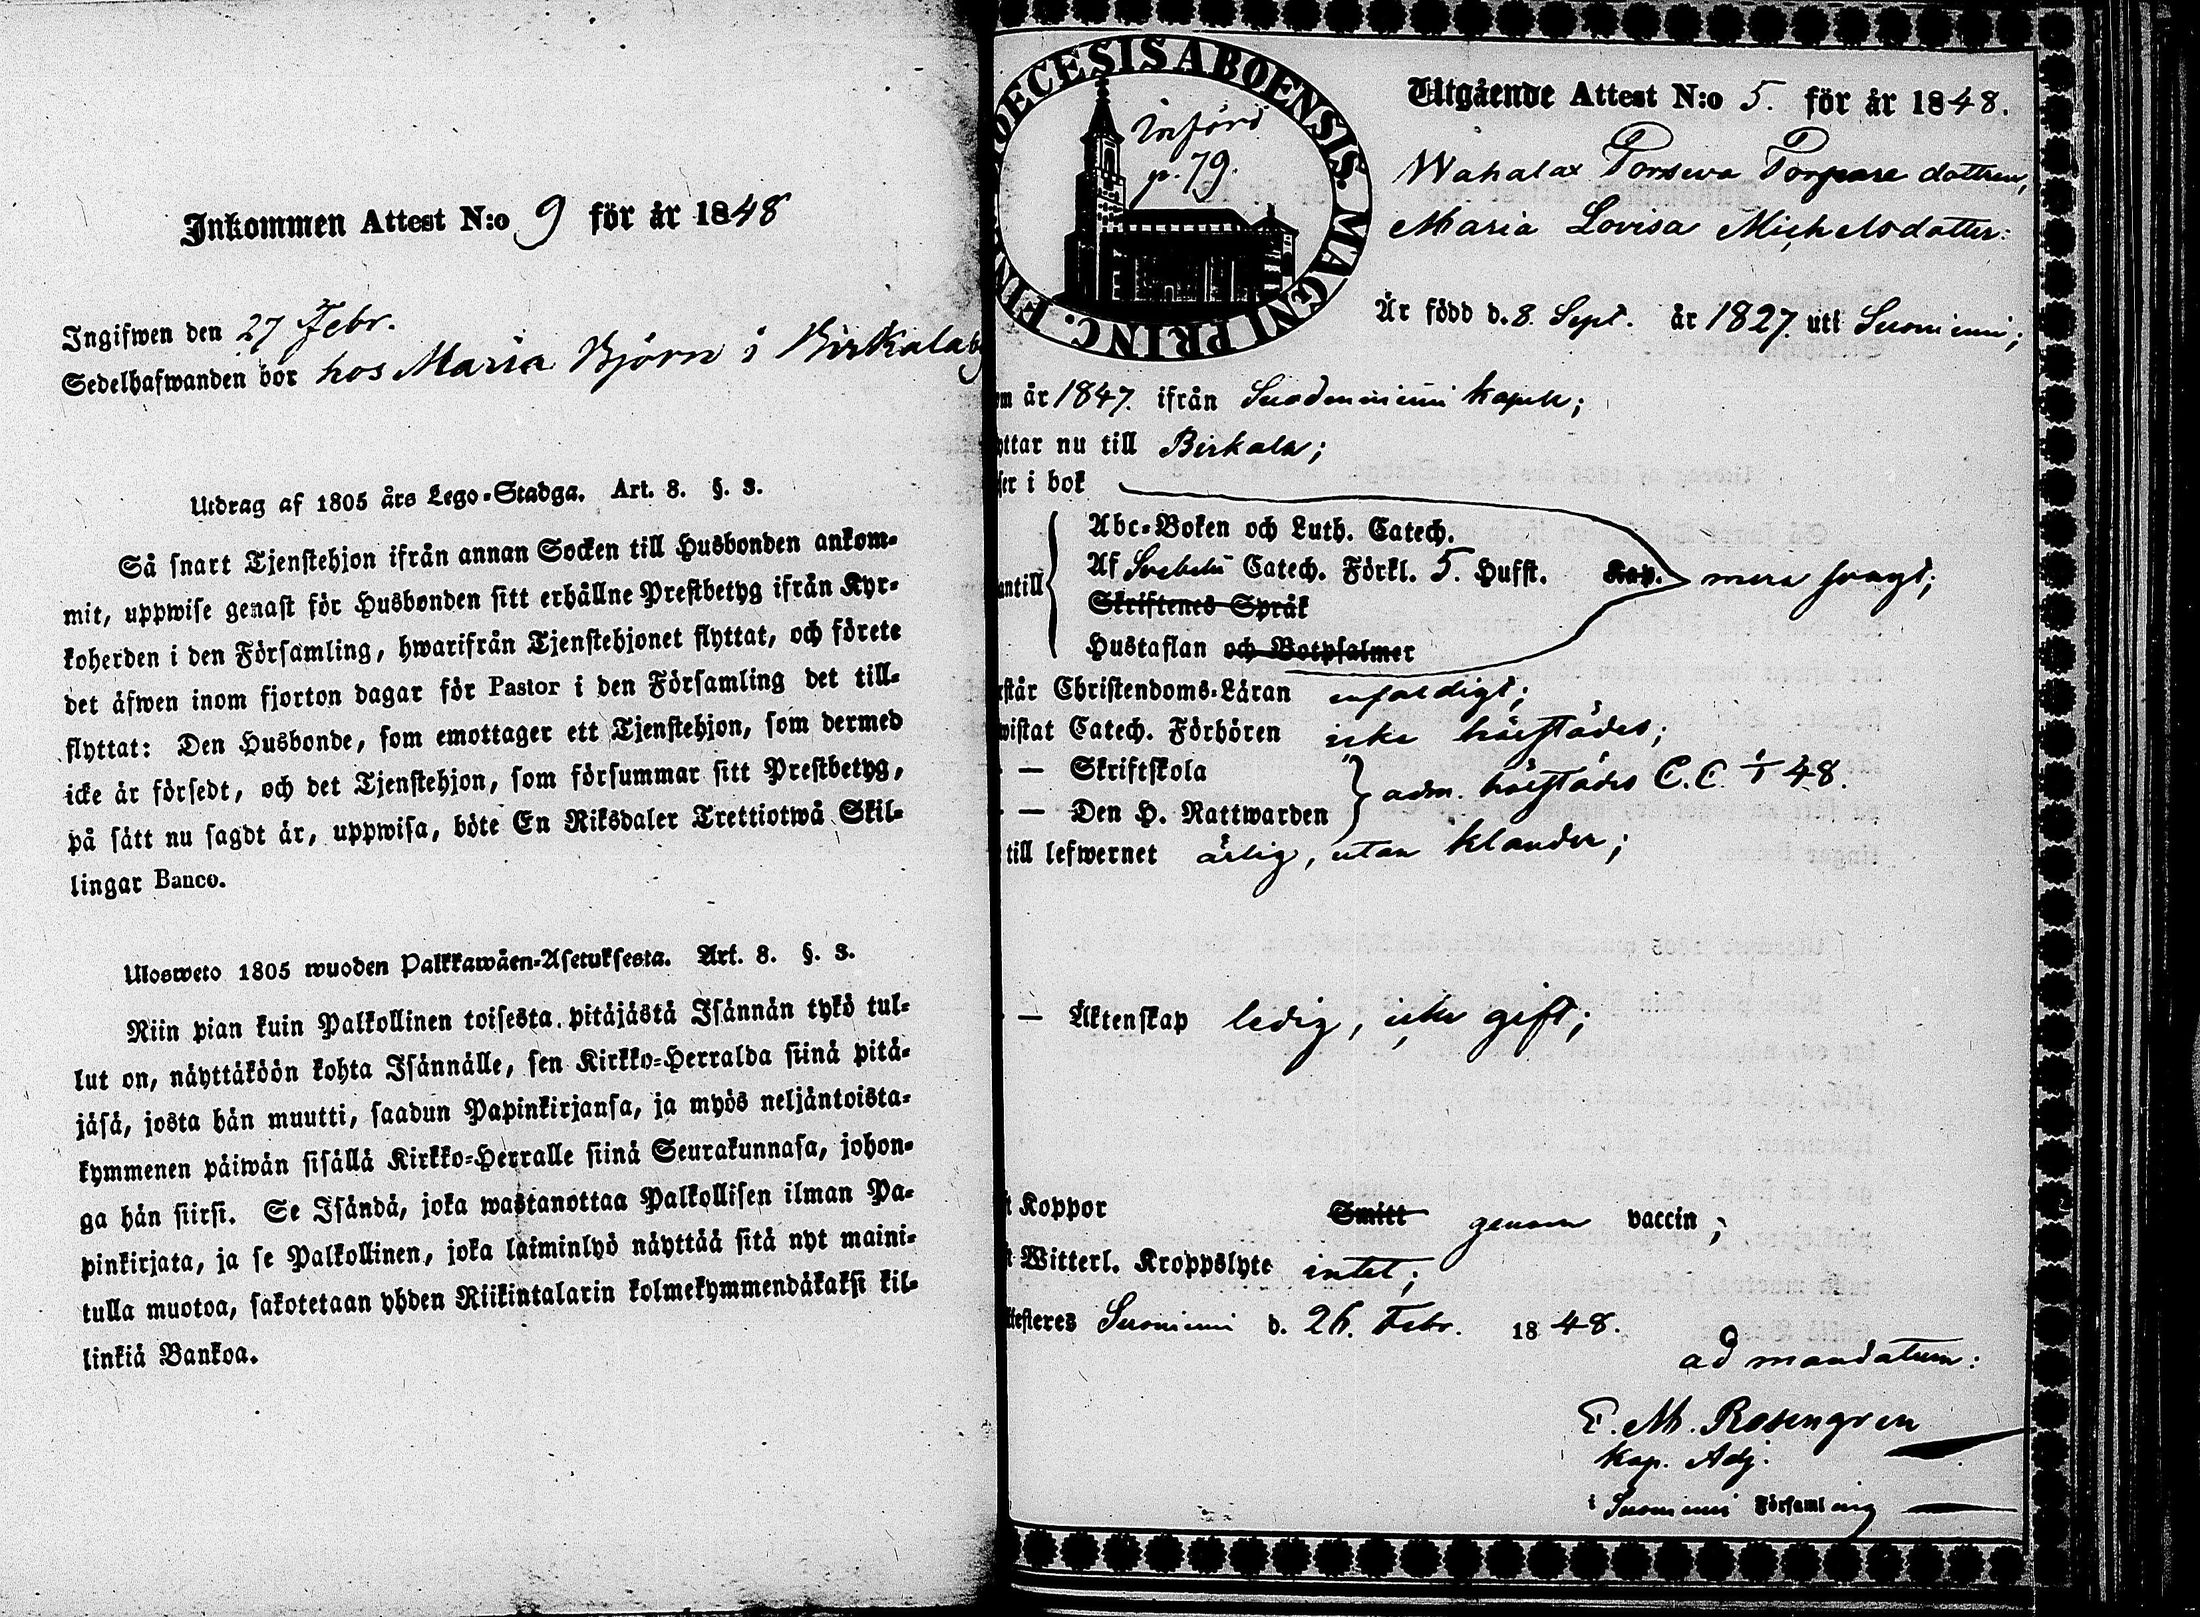 Inkommen Attest N:o 9 för år 1848
Ingifwen den 27 Febr.
Sedelhafwanden bor hos Maria Björn i Birkala by
Utdrag af 1805 års Lego-Stadga. Art. 8. §. 3.
Så snart Tjenstehjon ifrån annan Socken till Husbonden ankom-
mit, uppwise genast för Husbonden sitt erhållne Prestbetyg ifrån Kyr-
koherden i den Församling, hwarifrån Tjenstehjonet flyttat, och förete
det äfwen inom fjorton dagar för Pastor i den Församling det till-
flyttat: Den Husbonde, som emottager ett Tjenstehjon, som dermed
icke är försedt, och det Tjenstehjon, som försummar sitt Prestbetyg,
på sätt nu sagdt är, uppwisa, böte En Riksdaler Trettiotwå Skil-
lingar Banco.
Ulosweto 1805 wuoden Palkkawäen-Asetuksesta. Art. 8. §. 3.
Niin pian kuin Palkollinen toisesta pitäjästä Isännän tykö tul-
lut on, näyttäköön kohta Isännälle, sen Kirkko-Herralda siinä pitä-
jäsä, josta hän muutti, saadun Papinkirjansa, ja myös neljäntoista-
kymmenen päiwän sisällä Kirkko-Herralle siinä Seurakunnasa, johon-
ga hän siirsi. Se Isändä, joka wastanottaa Palkollisen ilman Pa-
pinkirjata, ja se Palkollinen, joka laiminlyö näyttää sitä nyt maini-
tulla muotoa, sakotetaan yhden Riikintalarin kolmekymmendäkaksi kil-
linkiä Bankoa.
DIOECESIS ABOENSIS. MAGNI PRINC. FIN
Införd
p. 79.
Utgående Attest N:o 5. för år 1848.
Wahalax Torpare dottren,
Maria Lovisa Michelsdotter:
Är född d. 8. Sept. år 1827. uti Suoniemi;
om år 1847. ifrån Suodenniemi kapell;
yttar nu till Birkala;
ser i bok
Abc-Boken och Luth. Catech.
antill Af Svebelii Catech. Förkl. 5. Hufst. Kap. mera svagt;
Skriftenes Språk
Hustaflan och Botpsalmer
rstår Christendoms-Läran enfaldigt;
wistat Catech. Förhören icke härstädes;
— Skriftskola
— Den H. Nattwarden adm. härstädes C.C. 1/1 48.
till lefwernet ärlig, utan klander;
— Äktenskap ledig, icke gift;
t Koppor Smitt genom vaccin;
t Witterl. Kroppslyte intet;
ttesteres Suoniemi d. 26. Febr. 1848.
ad mandatum:
F. M. Rosengren
Kap. Adj.
i Suoniemi Församling